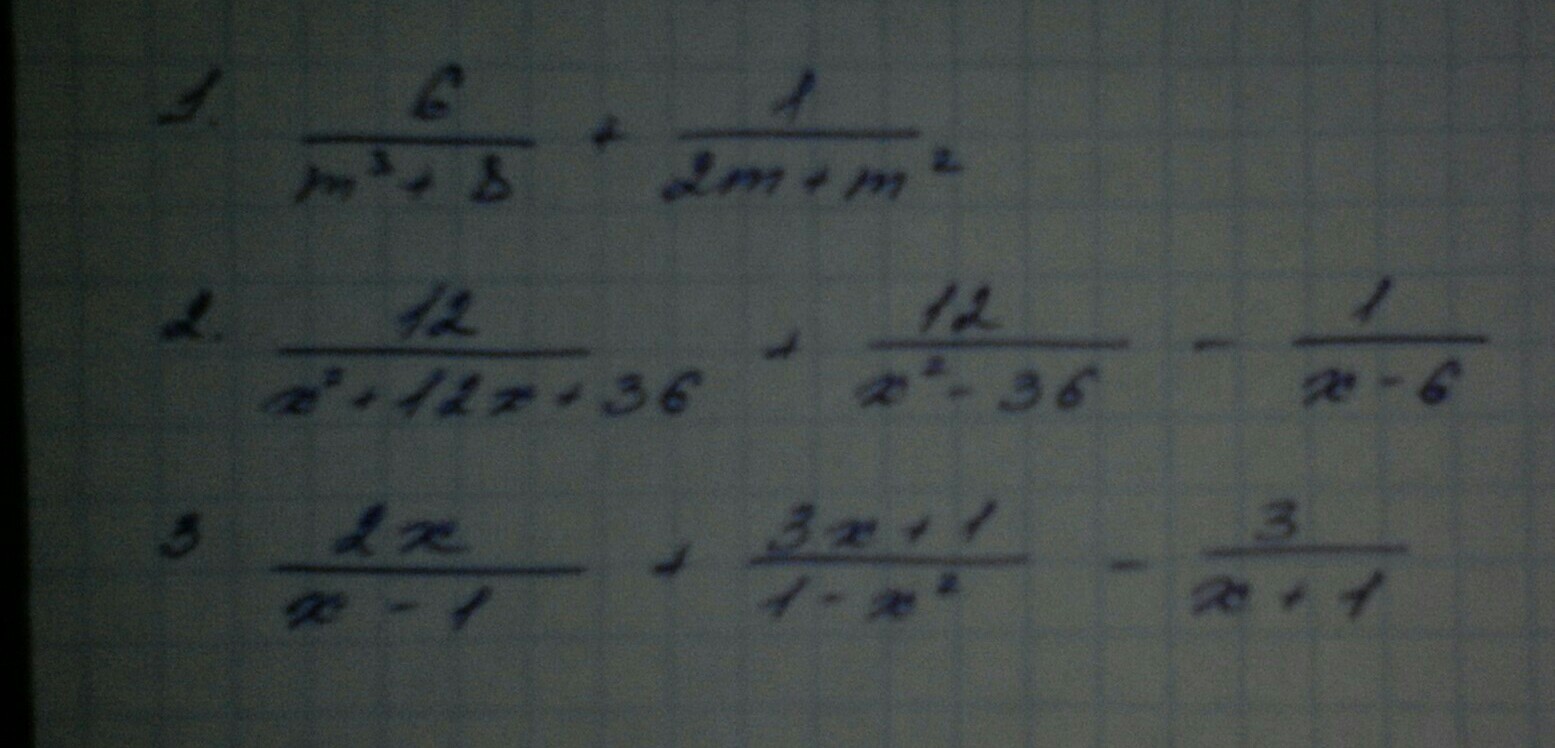 1. \frac{6}{m^3+8} + \frac{1}{2m+m^2}
2. \frac{12}{x^2+12x+36} + \frac{12}{x^2-36} - \frac{1}{x-6}
3 \frac{2x}{x-1} + \frac{3x+1}{1-x^2} - \frac{3}{x+1}